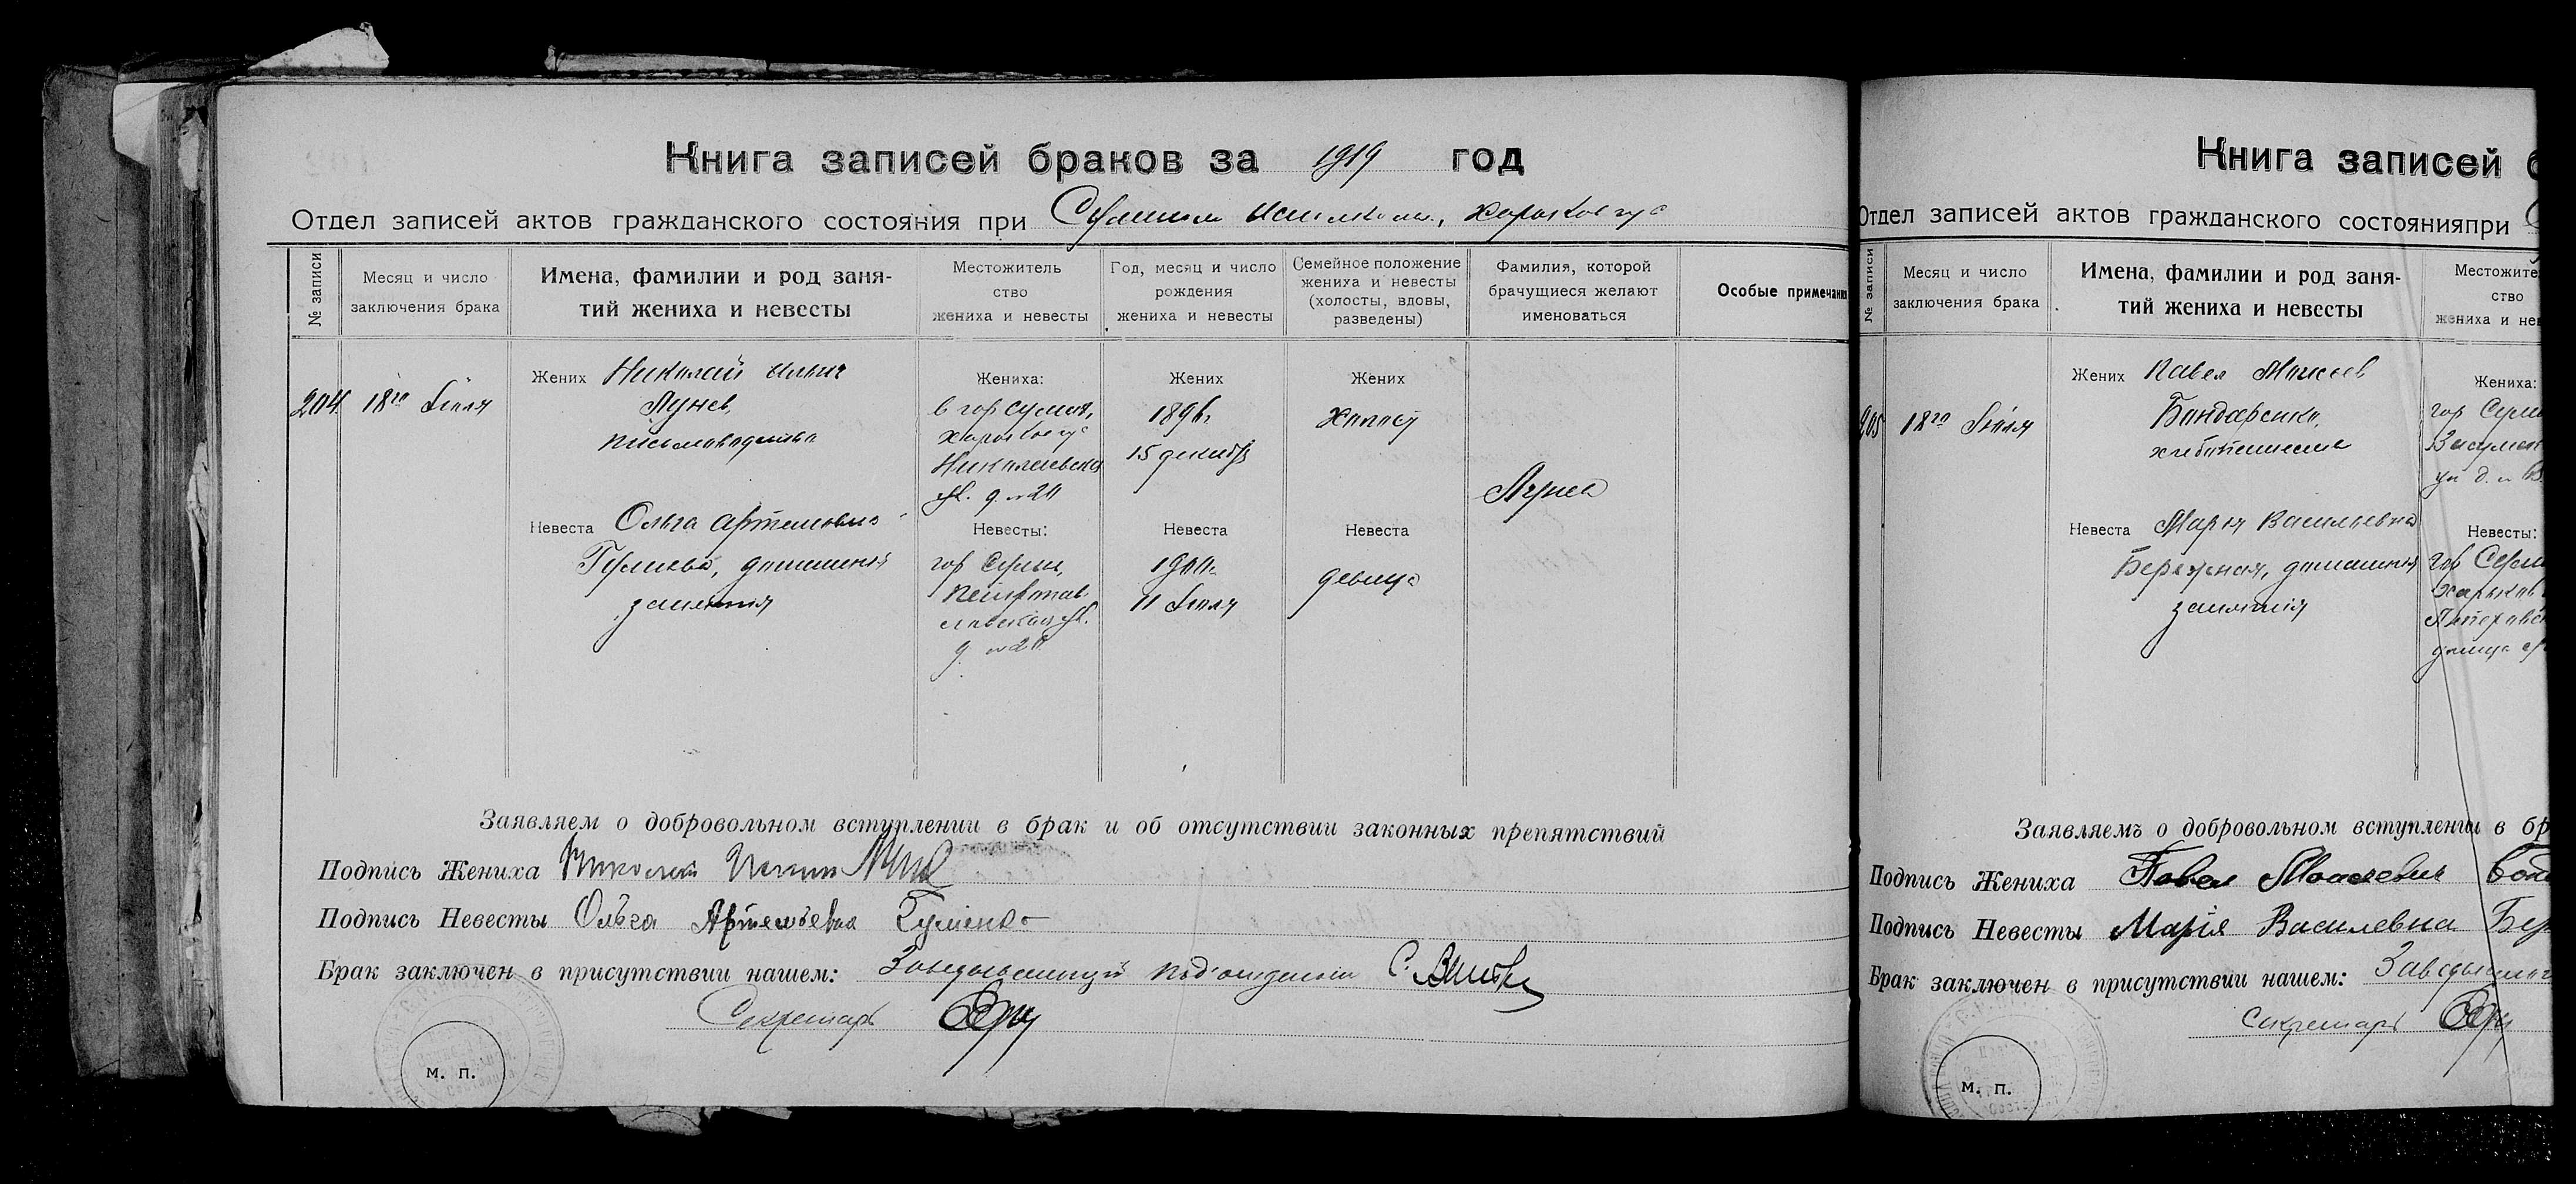 Книга записей браков за 1919 год
Отдел записей актов гражданского состояния при Сумском Исполкоме, Харьков губ
№ записи
Месяц и число
заключения брака
Имена, фамилии и род заня-
тий жениха и невесты
Местожитель
ство
жениха и невесты
Год, месяц и число
рождения
жениха и невесты
Семейное положение
жениха и невесты
(холосты, вдовы,
разведены)
Фамилия, которой
брачущиеся желают
именоваться
Особые примечани
204
18го Іюля
Жених Николай Ильич
Лунев,
письмоводитель
Жениха:
в гор Сумах,
Харьков губ
Николаевская
ул. д. №
Жених
189
15 декабр
Жених
Холост
Невеста Ольга Артемовна
домашнія
занятія
Невесты:
гор Сумы,
ул.
д. №
Невеста
11 Іюля
Невеста
девица
Заявляем о добровольном вступлении в брак и об отсутствии законных препятствий
Подпись Жениха Николай
Подпись Невесты Ольга Гуменко
Брак заключен в присутствии нашем: Заведывающий под'отделом С.
Секретарь
М. П.
Книга записей б
Отдел записей актов гражданского состоянияпри С
№ записи
Месяц и число
заключения брака
Имена, фамилии и род заня-
тий жениха и невесты
Местожите
ство
жениха и нев
205
18го Іюля
Жених Павел Моисеев
Бондаренко,
хлебопашец
Жениха:
гор Сумы
Невеста Мария Васильевна
Бережная, домашнія
занятія
Невесты:
гор Сумы
Харьков
улица
Заявляемъ о добровольном вступлении в бр
Подпись Жениха Павел Моисеевич Бон
Подпись Невесты Марія Василевна Бер
Брак заключен в присутствии нашем: Заведывающ
Секретарь
М. П.